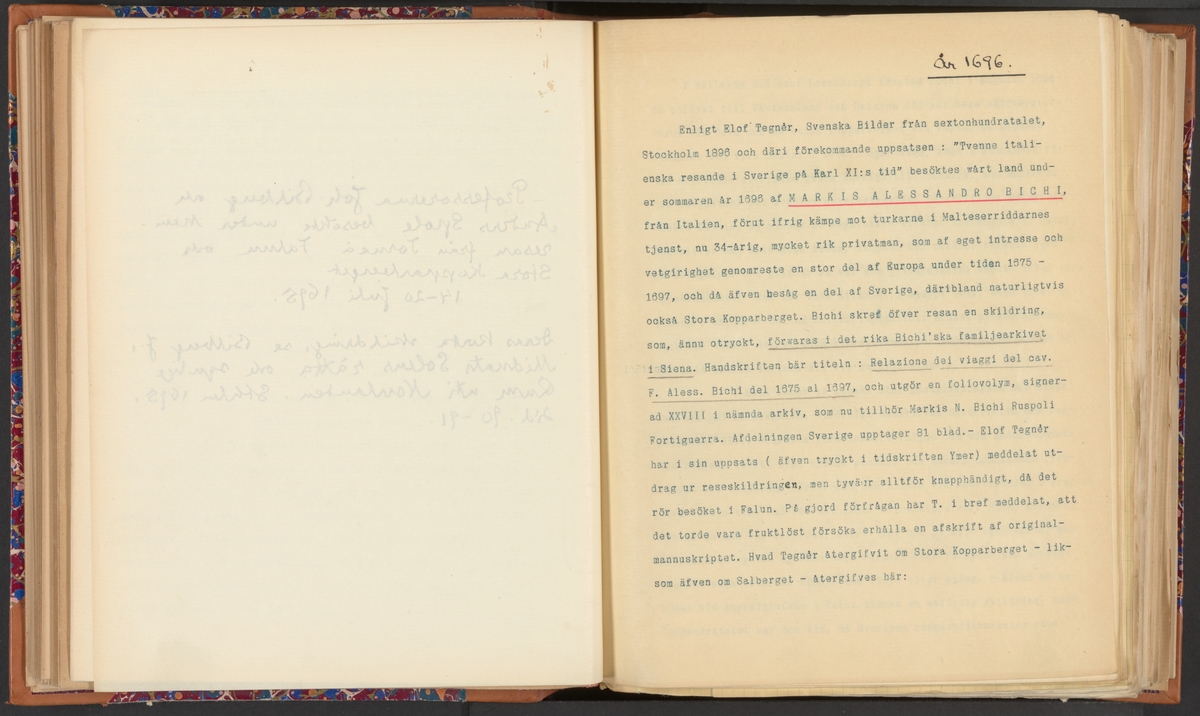 År 1696.
Enligt Elof Tegnér, Svenska Bilder från sextonhundratalet,
Stockholm 1896 och däri förekommande uppsatsen : "Tvenne itali-
enska resande i Sverige på Karl XI:s tid" besöktes wårt land und-
er sommaren år 1696 af MARKIS ALESSANDRO BICHI,
från Italien, förut ifrig kämpe mot turkarne i Malteserriddarnes
tjenst, nu 34-årig, mycket rik privatman, som af eget intresse och
vetgirighet genomreste en stor del af Europa under tiden 1675 -
1697, och då äfven besåg en del af Sverige, däribland naturligtvis
också Stora Kopparberget. Bichi skref öfver resan en skildring,
som, ännu otryckt, förwaras i det rika Bichi'ska familjearkivet
i Siena. Handskriften bär titeln : Relazione dei viaggi del cav.
F. Aless. Bichi del 1675 al 1697, och utgör en foliovolym, signer-
ad XXVIII i nämnda arkiv, som nu tillhör Markis N. Bichi Ruspoli
Fortiguerra. Afdelningen Sverige upptager 81 blad.- Elof Tegnér
har i sin uppsats ( äfven tryckt i tidskriften Ymer) meddelat ut-
drag ur reseskildringen, men tyvärr alltför knapphändigt, då det
rör besöket i Falun. På gjord förfrågan har T. i bref meddelat, att
det torde vara fruktlöst försöka erhålla en afskrift af original-
mannuskriptet. Hvad Tegnér återgifvit om Stora Kopparberget - lik-
som äfven om Salberget - återgifves här: